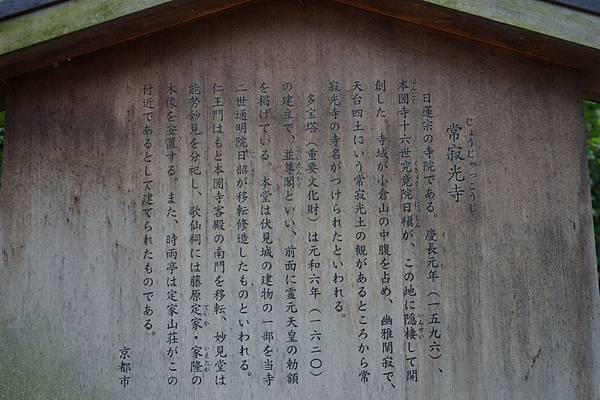 じょうじゃっこうじ
常寂光寺
日蓮宗の寺院である。慶長元年(一五九六)、
本圀寺十六世究竟院日禛が、この地に隠棲して開
創した。寺域が小倉山の中腹を占め、幽雅閑寂で、
天台四土にいう常寂光土の観があるところから常
寂光寺の寺名がつけられたといわれる。
多宝塔(重要文化財)は元和六年(一六二〇)
の建立で、並尊閣といい、前面に霊元天皇の勅額
を掲げている。本堂は伏見城の建物の一部を当寺
二世通明院日韶が移転修造したものといわれる。
仁王門はもと本圀寺客殿の南門を移転、妙見堂は
能勢妙見を分祀し、歌仙祠には藤原定家・家隆の
木像を安置する。また、時雨亭は定家山荘がこの
付近であるとして建てられたものである。
京都市